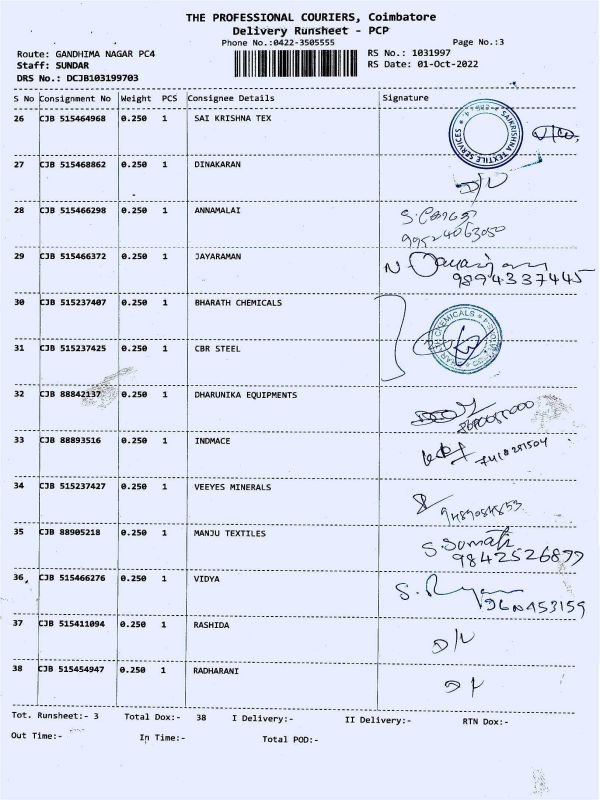 THE PROFESSIONAL COURIERS, Coimbatore
Delivery Runsheet - PCP
Phone No.:0422-3505555 Page No.:3
Route: GANDHIMA NAGAR PC4 RS No.: 1031997
Staff: SUNDAR RS Date: 01-Oct-2022
DRS No.: DCJB103199703
S No Consignment No Weight PCS Consignee Details Signature
26 CJB 515464968 0.250 1 SAI KRISHNA TEX
SAIKRISHNA TEXTILE SERVICES
27 CJB 515468862 0.250 1 DINAKARAN
D/L
28 CJB 515466298 0.250 1 ANNAMALAI
99524063050
29 CJB 515466372 0.250 1 JAYARAMAN
N Jayaraman
9894337445
30 CJB 515237407 0.250 1 BHARATH CHEMICALS
BHARATH CHEMICALS
31 CJB 515237425 0.250 1 CBR STEEL
32 CJB 88842137 0.250 1 DHARUNIKA EQUIPMENTS
33 CJB 88893516 0.250 1 INDMACE
7418251504
34 CJB 515237427 0.250 1 VEEYES MINERALS
9489084853
35 CJB 88905218 0.250 1 MANJU TEXTILES
S.Sumathi
9842526877
36 CJB 515466276 0.250 1 VIDYA
37 CJB 515411094 0.250 1 RASHIDA
D/L
38 CJB 515454947 0.250 1 RADHARANI
D/L
Tot. Runsheet:- 3 Total Dox:- 38 I Delivery:- II Delivery:- RTN Dox:-
Out Time:- In Time:- Total POD:-